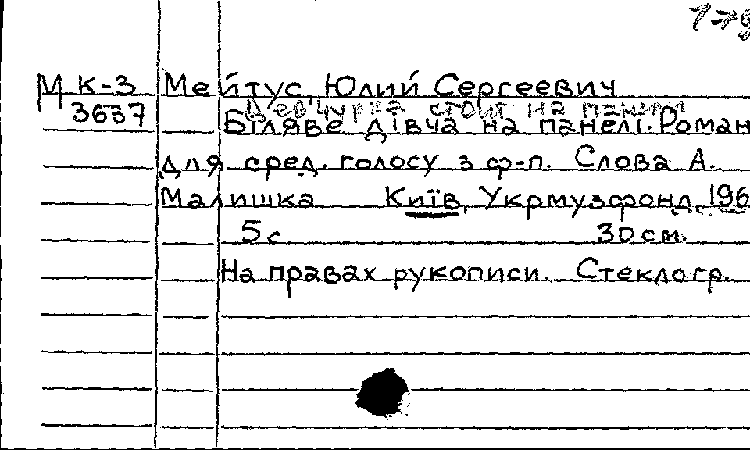 МК-3 Мейтус, Юлий Сергеевич
Девчурка стоит на панели
3637 Біляве дівча на панелі. Роман
для сред. голосу з ф-п. Слова А.
Малишка Київ, Укрмузфонд, 196
5 с. 30 см.
На правах рукописи. Стеклогр.